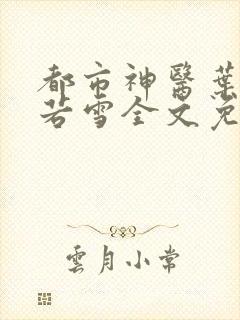 都市神醫葉
若雪全文免
雲月小常